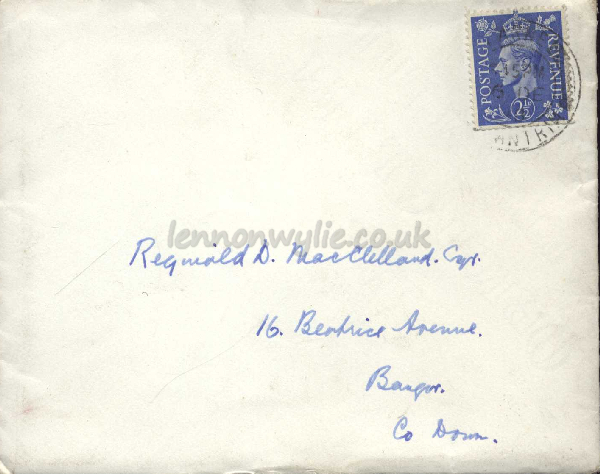 POSTAGE REVENUE
2½
ANTRIM
lennonwylie.co.uk
Reginald D. MacClelland. Esqr.
16. Beatrice Avenue.
Bangor.
Co Down.